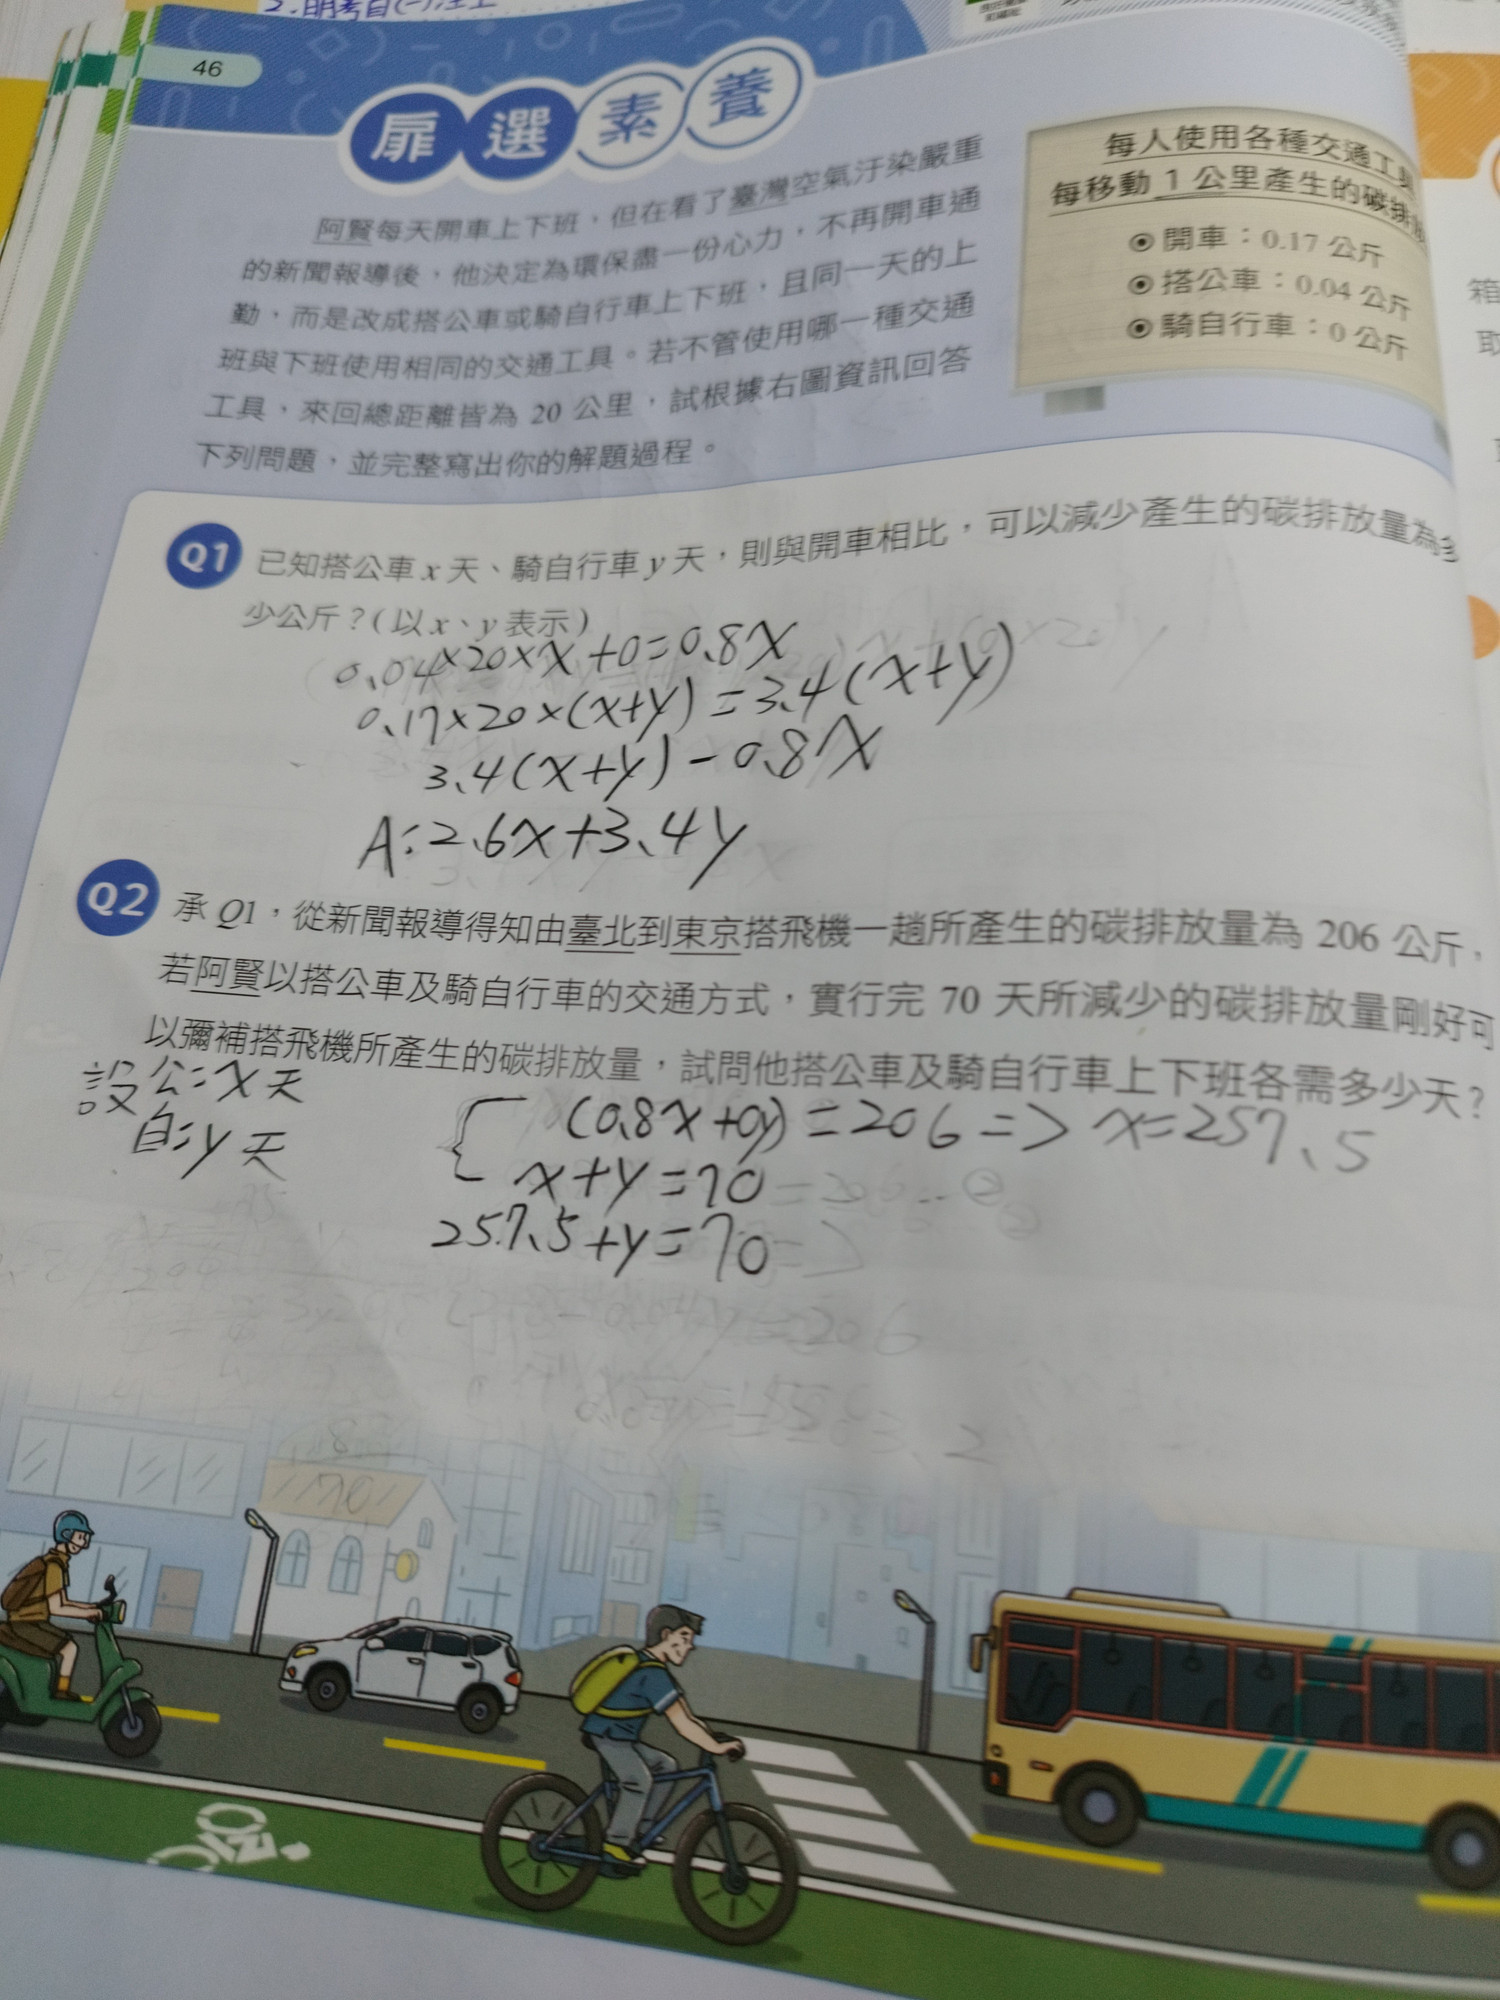 46
扉選素養
阿賢每天開車上下班，但在看了臺灣空氣汙染嚴重
的新聞報導後，他決定為環保盡一份心力，不再開車通
勤，而是改成搭公車或騎自行車上下班，且同一天的上
班與下班使用相同的交通工具。若不管使用哪一種交通
工具，來回總距離皆為 20 公里，試根據右圖資訊回答
下列問題，並完整寫出你的解題過程。
每人使用各種交通工具
每移動 1 公里產生的碳排放
開車：0.17 公斤
搭公車：0.04 公斤
騎自行車：0 公斤
Q1 已知搭公車 x 天、騎自行車 y 天，則與開車相比，可以減少產生的碳排放量為多
少公斤？(以 x、y 表示)
0.04×20×x+0=0.8x
0.17×20×(x+y)=3.4(x+y)
3.4(x+y)-0.8x
A:2.6x+3.4y
Q2 承 Q1，從新聞報導得知由臺北到東京搭飛機一趟所產生的碳排放量為 206 公斤，
若阿賢以搭公車及騎自行車的交通方式，實行完 70 天所減少的碳排放量剛好可
以彌補搭飛機所產生的碳排放量，試問他搭公車及騎自行車上下班各需多少天？
設公:x天
自:y天
(0.8x+0y)=206=>x=257.5
x+y=70
257.5+y=70